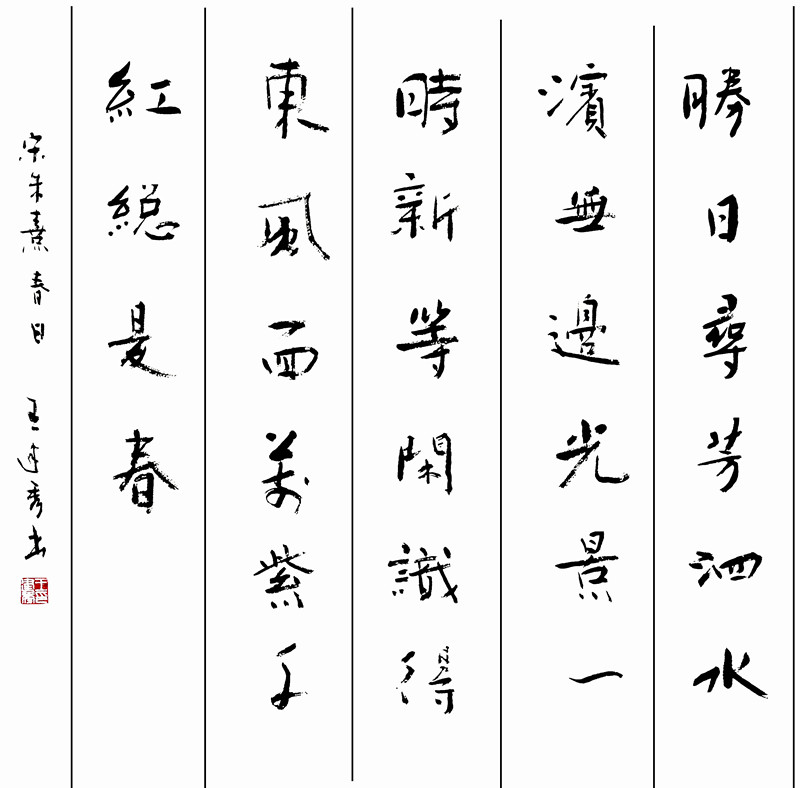 勝日尋芳泗水
濱無邊光景一
時新等閑識得
東風面萬紫千
紅總是春
宋朱熹春日 王建秀书